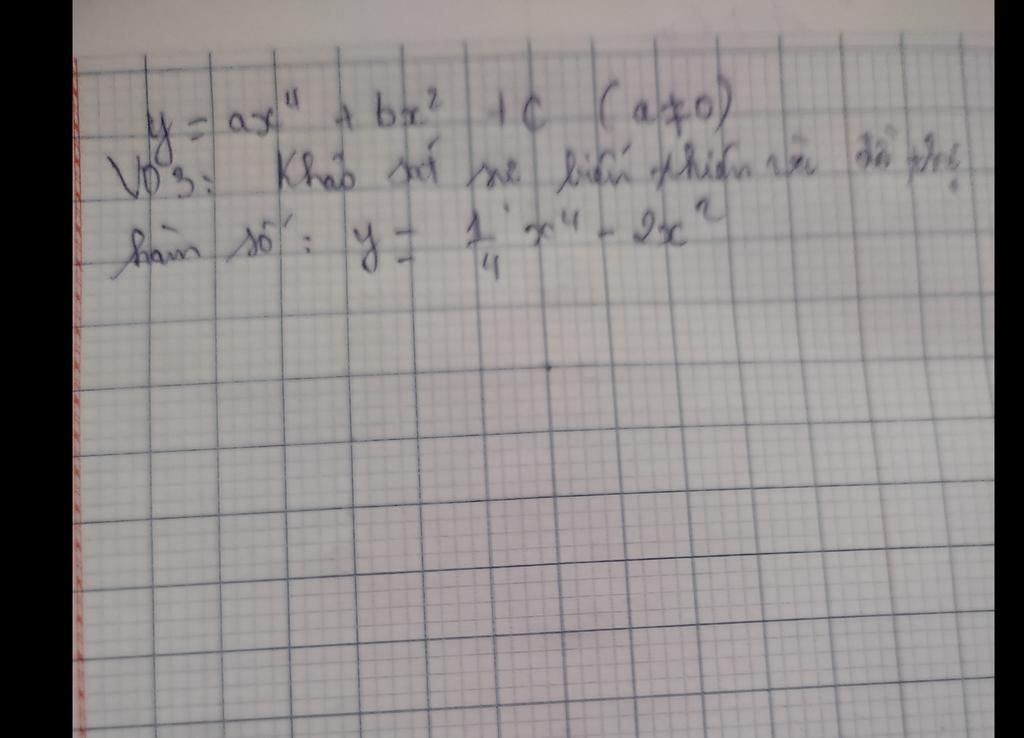 y = ax⁴ + bx² + c (a ≠ 0)
VD3: Khảo sát sự biến thiên và đồ thị
hàm số: y = 1/4 x⁴ - 2x²